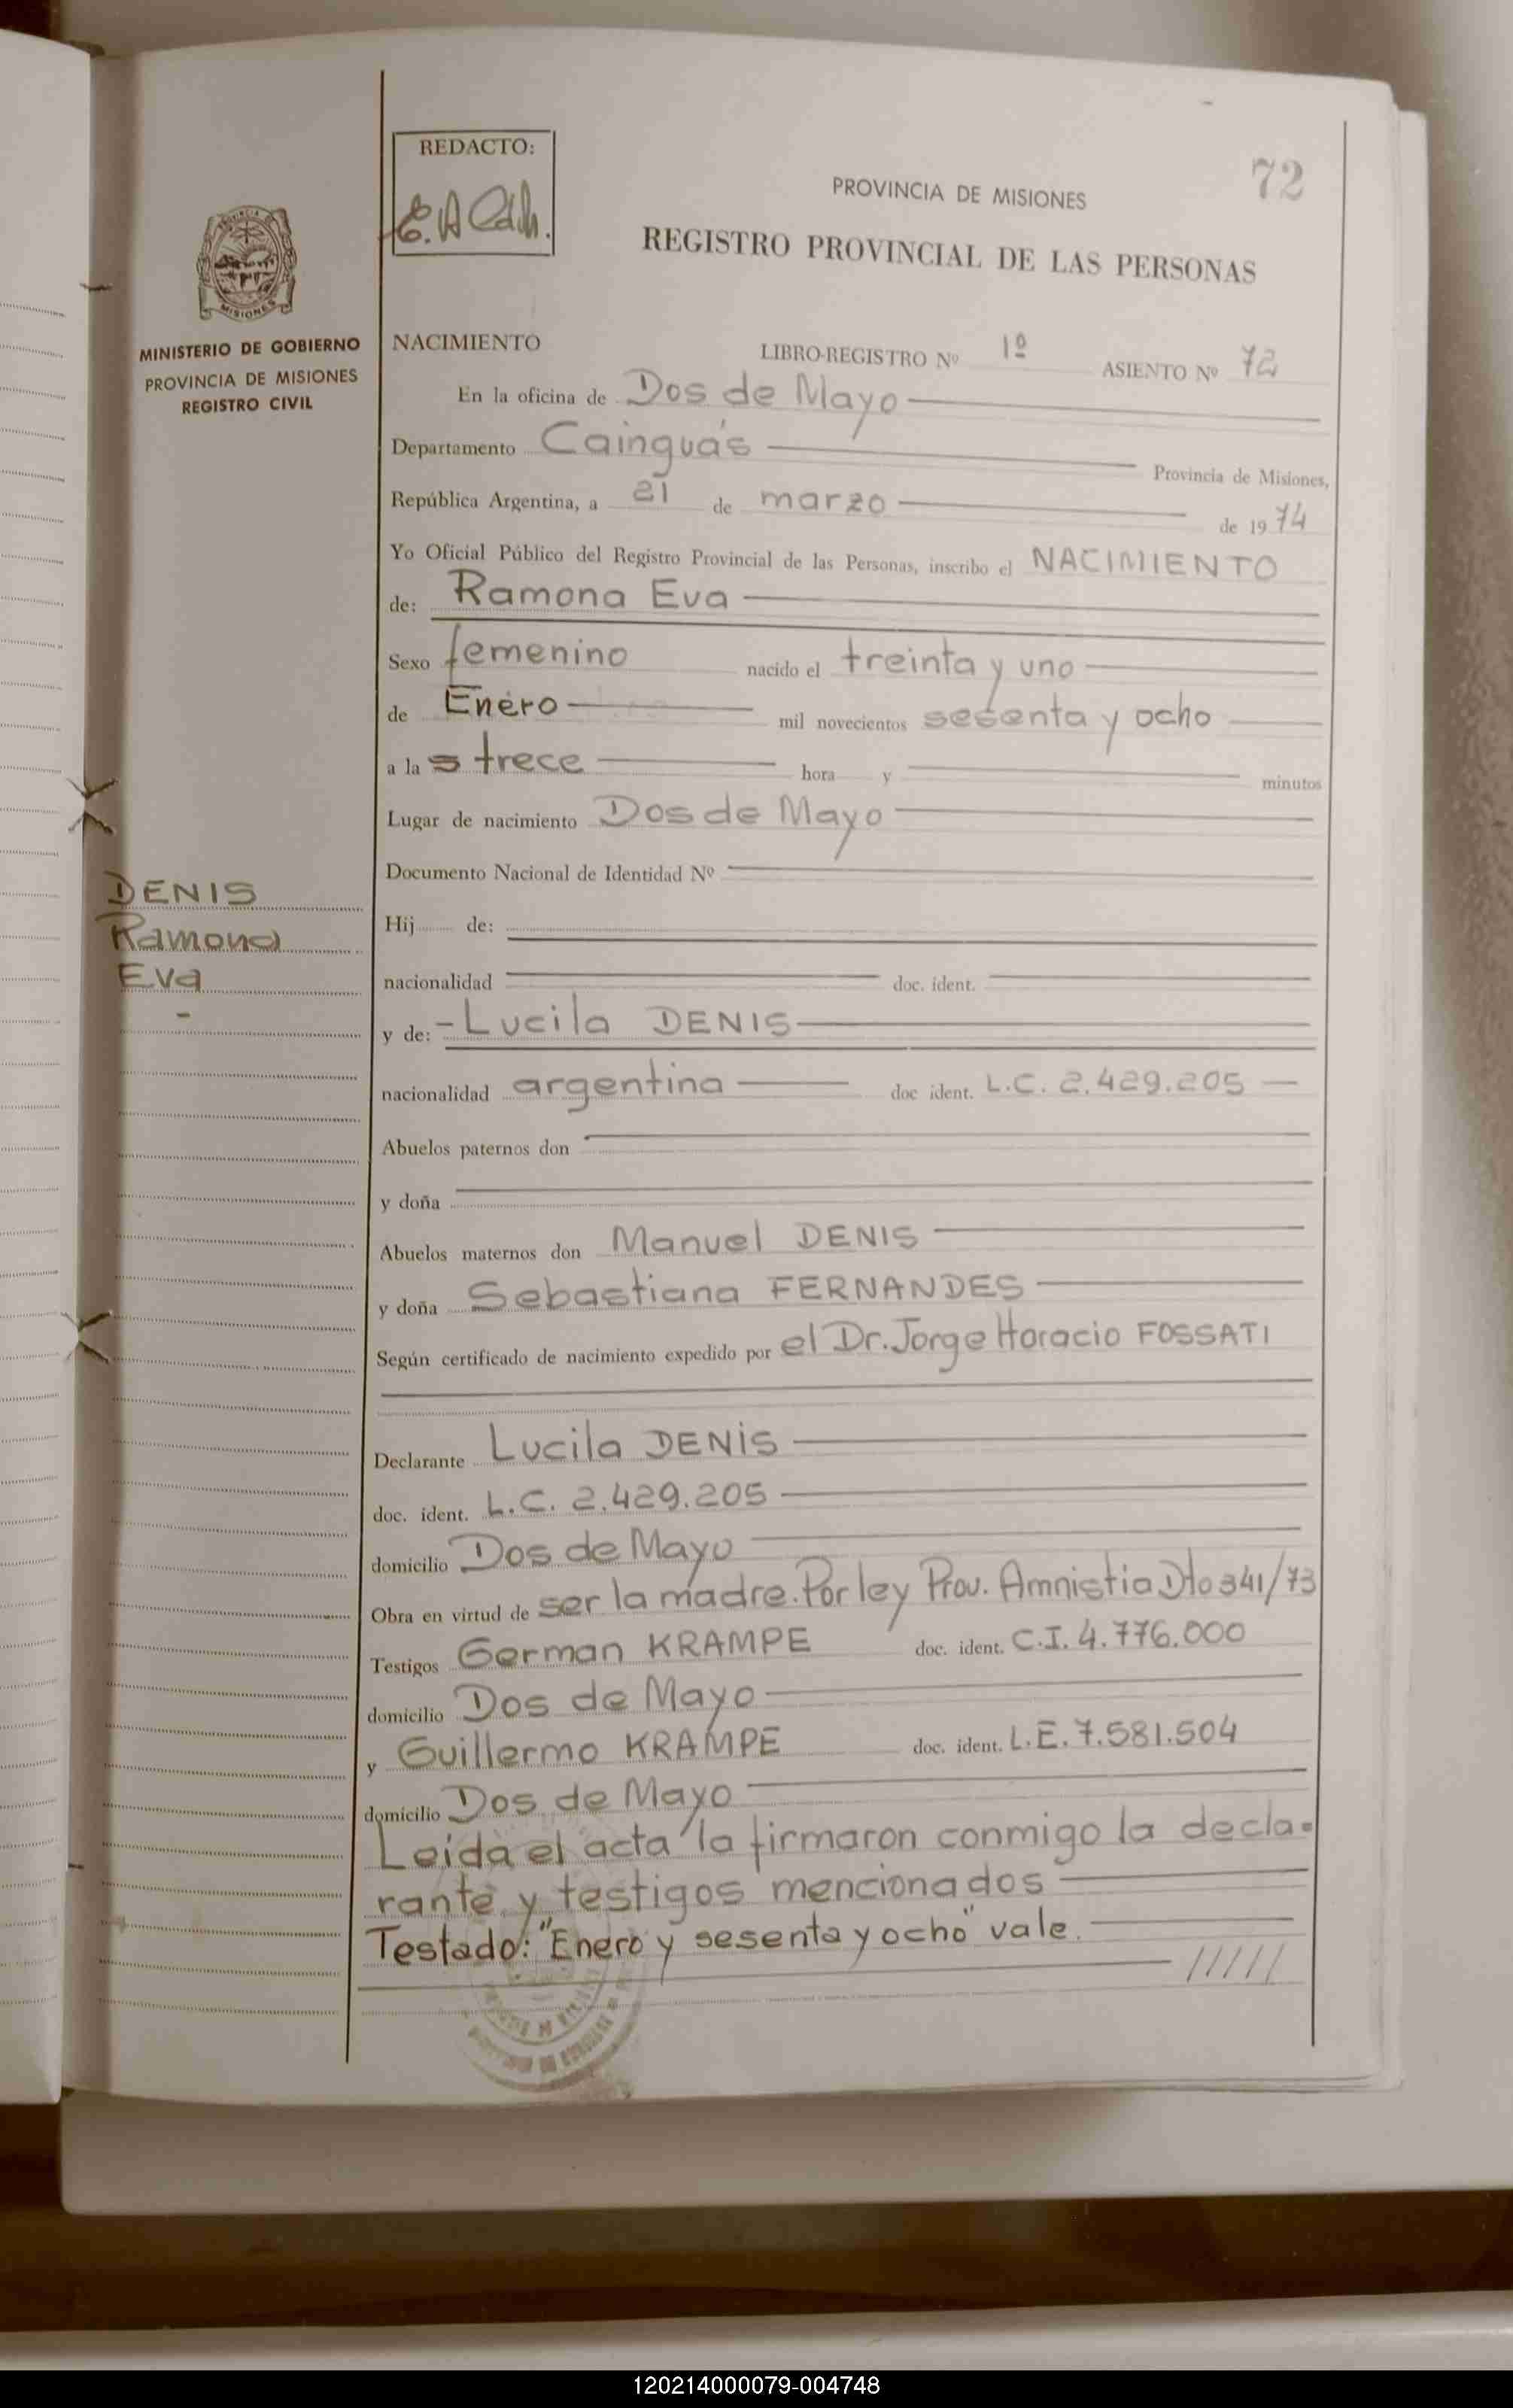 72
REDACTO:
PROVINCIA DE MISIONES
REGISTRO PROVINCIAL DE LAS PERSONAS
MISIONES
MINISTERIO DE GOBIERNO
PROVINCIA DE MISIONES
REGISTRO CIVIL
NACIMIENTO LIBRO-REGISTRO Nº 1º ASIENTO Nº 72
En la oficina de Dos de Mayo
Departamento Cainguás Provincia de Misiones,
República Argentina, a 21 de marzo de 1974
Yo Oficial Público del Registro Provincial de las Personas, inscribo el NACIMIENTO
de: Ramona Eva
Sexo femenino nacido el treinta y uno
de Enero mil novecientos sesenta y ocho
a las trece hora y minutos
Lugar de nacimiento Dos de Mayo
Documento Nacional de Identidad Nº
DENIS
Ramona
Eva
Hij de:
nacionalidad doc. ident.
y de: Lucila DENIS
nacionalidad argentina doc ident. L.C. 2.429.205
Abuelos paternos don
y doña
Abuelos maternos don Manuel DENIS
y doña Sebastiana FERNANDES
Según certificado de nacimiento expedido por el Dr. Jorge Horacio FOSSATI
Declarante Lucila DENIS
doc. ident. L.C. 2.429.205
domicilio Dos de Mayo
Obra en virtud de ser la madre. Por ley Prov. Amnistia Dto 341/73
Testigos German KRAMPE doc. ident. C.I. 4.776.000
domicilio Dos de Mayo
y Guillermo KRAMPE doc. ident. L.E. 7.581.504
domicilio Dos de Mayo
Leida el acta la firmaron conmigo la decla-
rante y testigos mencionados
Testado: "Enero y sesenta y ocho" vale.
120214000079-004748